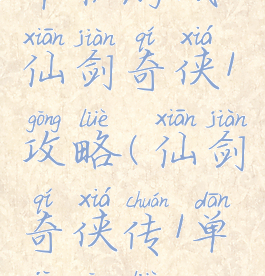 xiān jiàn qí xiá
仙剑奇侠1
gōng lüè xiān jiàn
攻略(仙剑
qí xiá chuán dān
奇侠传1单